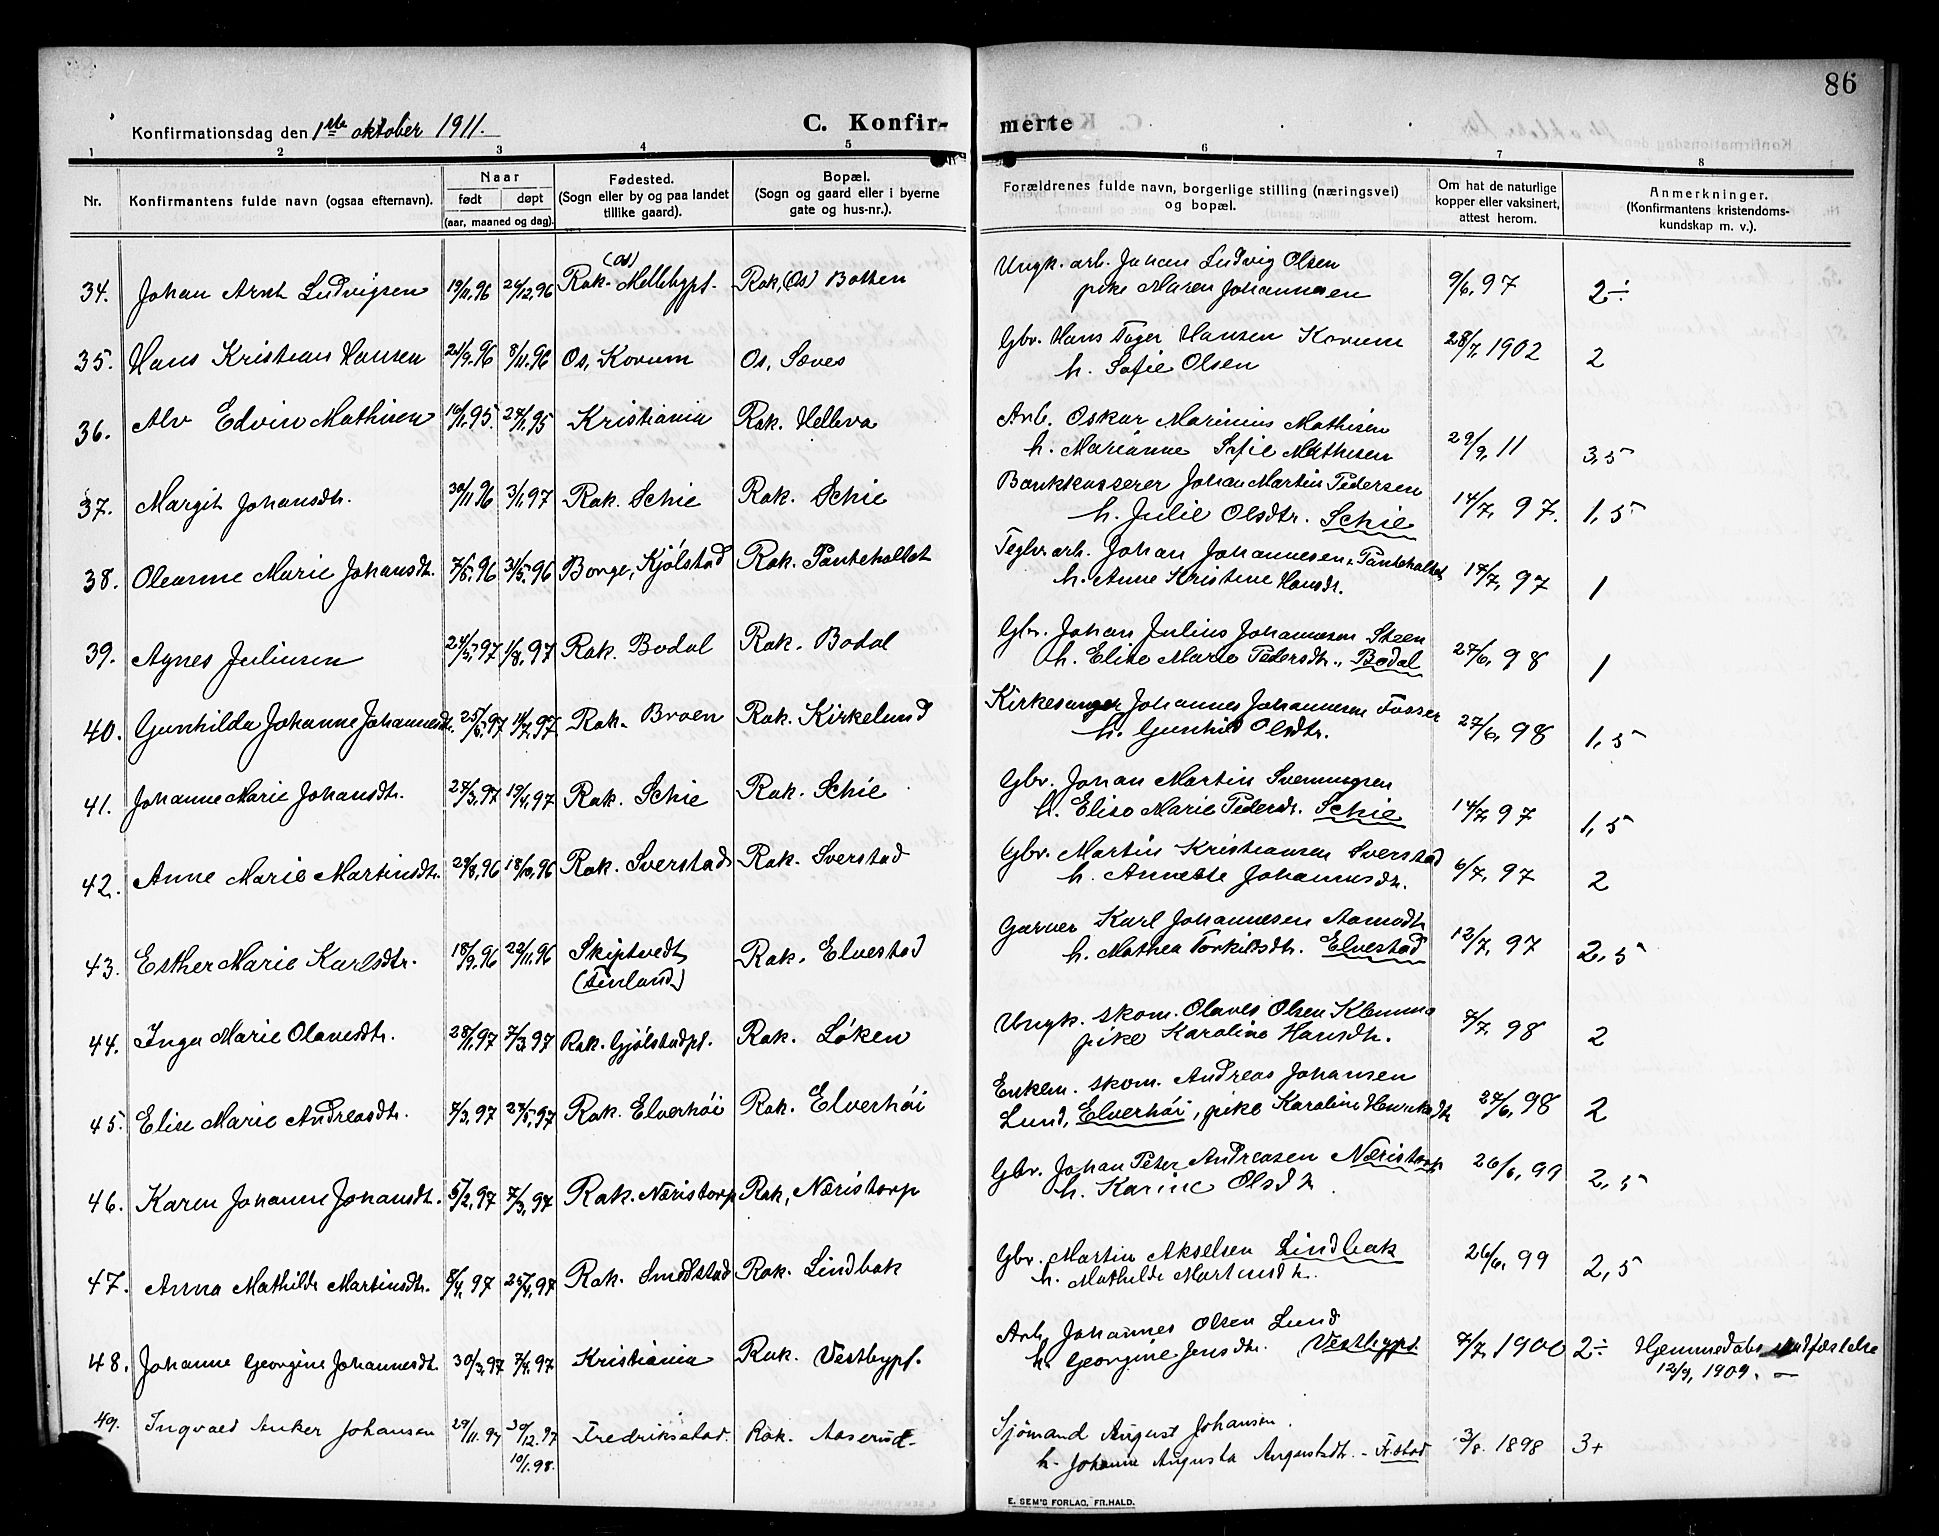 86
Konfirmationsdag den 1ste oktober 1911.
C. Konfir-
merte
1 2 3 4 5 6 7 8
Nr. Konfirmantens fulde navn (ogsaa efternavn). Naar født døpt (aar, maaned og dag). Fødested. (Sogn eller by og paa landet tillike gaard). Bopæl. (Sogn og gaard eller i byerne gate og hus-nr.). Forældrenes fulde navn, borgerlige stilling (næringsvei) og bopæl. Om hat de naturlige kopper eller vaksinert, attest herom. Anmerkninger. (Konfirmantens kristendoms-kundskap m. v.).
34. Johan Arnt Ludvigsen 19/11, 96 26/12, 96 Rak. (Os) Mellebypl. Rak, (Os) Botten Ungk. arb. Johan Ludvig Olsen 9/6, 97 2÷
pike Maren Johannesen
35. Hans Kristian Hansen 21/9, 96 8/11, 96 Os, Korum Os, Sæves Gbr. Hans Hansen Korum 28/7, 1902 2
h. Sofie Olsen
36. Alv Edvin Mathisen 16/1, 95. 24/1, 95 Kristiania Rak. Helleva Arb. Oskar Marinius Mathisen 29/9, 11 3,5
h. Marianne Sofie Mathisen
37. Margit Johansdtr. 30/11, 96 3/1, 97 Rak. Schie Rak. Schie Bankkasserer Johan Martin Pedersen 14/7, 97. 1,5
h. Julie Olsdtr. Schie
38. Oleanne Marie Johansdtr. 7/5, 96 31/5, 96 Borge, Kjølstad Rak. Pantehollet Teglv.arb. Johan Johannesen, Panteholtet 14/7, 97 1
h. Anne Kristine Hansdtr.
39. Agnes Juliusen 24/5, 97 1/8, 97 Rak. Bodal Rak. Bodal Gbr. Johan Julius Johannesen Steen 27/6, 98 1
h. Elise Marie Pedersdtr., Bodal
40. Gunhilda Johanne Johannesdtr. 25/6, 97 11/7, 97 Rak. Braen Rak. Kirkelund Kirkesanger Johannes Johannesen Fosser 27/6, 98 1,5
h. Gunhild Olsdtr.
41. Johanne Marie Johansdtr. 27/3, 97 19/4, 97 Rak. Schie Rak. Schie Gbr. Johan Martin Svenningsen 14/7, 97 1,5
h. Elise Marie Pedersdtr. Schie
42. Anne Marie Martinsdtr. 29/8, 96 18/10, 96 Rak. Sverstad Rak. Sverstad Gbr. Martin Kristiansen Sverstad 6/7, 97 2
h. Annette Johannesdtr.
43. Esther Marie Karlsdtr. 18/9, 96 22/11, 96 Skiptvedt (Finland) Rak. Elvestad Garver Karl Johannesen Aamodt 12/7, 97 2,5
h. Mathea Torkildsdtr. Elvestad
44. Inga Marie Olavesdtr. 28/1, 97 7/3, 97 Rak. Gjølstadpl. Rak. Løken Ungk. skom. Olaves Olsen Klemma 7/7, 98 2
pike Karoline Hansdtr.
45. Elise Marie Andreasdtr. 7/3, 97 27/5, 97 Rak. Elverhøi Rak. Elverhøi Enkem. skom. Andreas Johansen 27/6, 98 2
Lund, Elverhøi, pike Karoline Henriksdtr
46. Karen Johanne Johansdtr. 5/2, 97 7/3, 97 Rak. Næristorp Rak, Næristorp Gbr. Johan Peter Andreasen Næristorp 26/6, 99 2,5
h. Karine Olsdtr
47. Anna Mathilde Martinsdtr. 8/4, 97 25/4, 97 Rak. Smedstad Rak. Lindbak Gbr. Martin Akselsen Lindbak 26/6, 99 2,5
h. Mathilde Martinsdtr.
48. Johanne Georgine Johannesdtr. 30/3, 97 7/4, 97 Kristiania Rak. Vestbypl. Arb. Johannes Olsen Lund 7/7, 1900 2÷ Hjemmedaabs stadfæstelse
h. Georgine Jensdtr. Vestbypl. 12/9, 1909. —
49. Ingvald Anker Johansen 29/11. 97 30/12. 97 Fredriksstad. Rak. Aaserud. Sjømand August Johansen. 3/8. 1898 3+
10/1. 98. h. Johanne Augusta Augustsdtr. - Fr.stad
E. SEM'S FORLAG, FR.HALD.